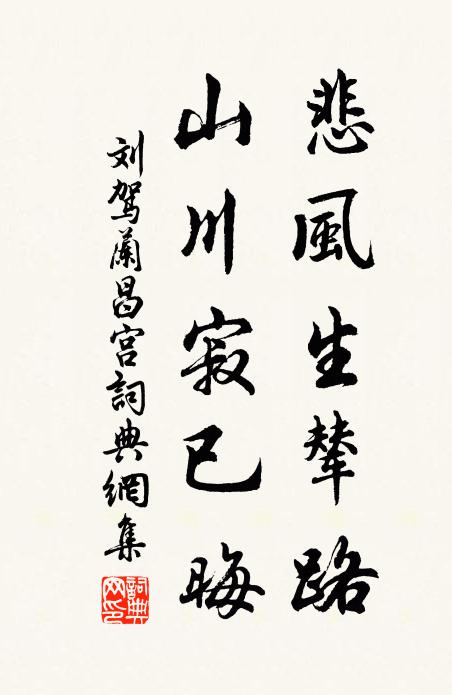 悲風生輦路
山川寂已晦
刘驾蘭昌宮詞典網集
詞典网印